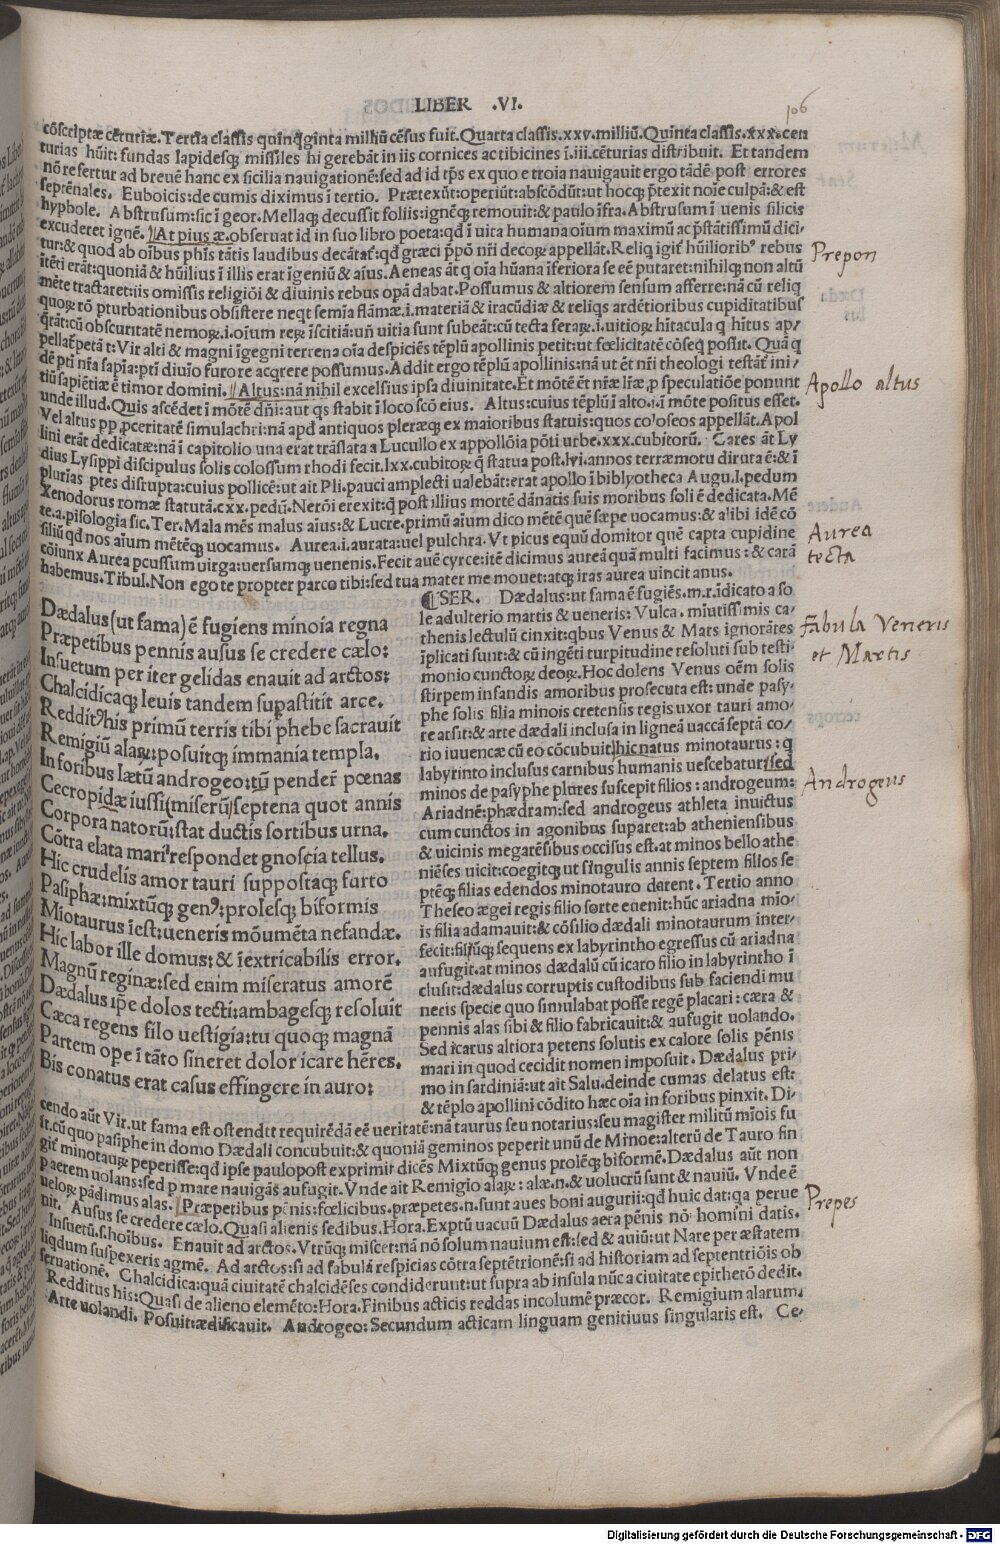 LIBER .VI.
106
cõscriptæ cẽturiæ. Tertia classis quinq̃ginta milliũ cẽsus fuit. Quarta classis .xxv. milliũ. Quinta classis .xxx. cen
turias hũit: fundas lapidesq; missiles hi gerebãt in iis cornices ac tibicines ĩ .iii. cẽturias distribuit. Et tandem
nõ refertur ad breuẽ hanc ex sicilia nauigationẽ: sed ad id tp̃s ex quo e troia nauigauit ergo tãdẽ post errores
septẽnales. Euboicis: de cumis diximus ĩ tertio. Prætexũt: operiũt: abscõdũt: ut hocq; p̃texit noĩe culpã: & est
hypbole. Abstrusum: sic ĩ geor. Mellaq; decussit foliis: ignẽq; remouit: & paulo ĩfra. Abstrusum ĩ uenis silicis
excuderet ignẽ. At pius æ. obseruat id in suo libro poeta: qd ĩ uita humana oĩum maximũ ac p̃stãtissimũ dici/
tur: & quod ab oĩbus phĩs tãtis laudibus decãtat̃: qd græci p̃põ nr̃i decoꝝ appellãt. Reliq igit̃ hũilioribꝰ rebus
ĩtẽti erãt: quoniã & hũilius ĩ illis erat ĩgeniũ & aĩus. Aeneas ãt q oĩa hũana ĩferiora se eẽ putaret: nihilq; non altũ
mẽte tractaret: iis omissis religiõi & diuinis rebus opã dabat. Possumus & altiorem sensum afferre: nã cũ reliq
quoꝝ rõ pturbationibus obsistere neqt semĩa flãmæ .i. materiã & iracũdiæ & reliqs ardẽtioribus cupiditatibus
q̃rãt: cũ obscuritatẽ nemoꝝ .i. oĩum reꝝ ĩscitiã: uñ uitia sunt subeãt: cũ tecta feraꝝ .i. uitioꝝ hĩtacula q hĩtus ap/
pellat̃ petãt: Vir alti & magni ĩgegni terrena oĩa despiciẽs tẽplũ apollinis petit: ut fœlicitatẽ cõseq possit. Quã q
dẽ pti nr̃a sapiã: pti diuĩo furore acqrere possumus. Addit ergo tẽplũ apollinis: nã ut ẽt nr̃i theologi testãt̃ ini/
tiũ sapiẽtiæ ẽ timor domini. Altus: nã nihil excelsius ipsa diuinitate. Et mõtẽ ẽt nr̃æ lr̃æ, p speculatiõe ponunt
unde illud. Quis ascẽdet ĩ mõtẽ dñi: aut qs stabit ĩ loco scõ eius. Altus: cuius tẽplũ ĩ alto .i. ĩ mõte positus esset.
Vel altus pp pceritatẽ simulachri: nã apd antiquos pleræq; ex maioribus statuis: quos colꝰoseos appellãt. Apol
lini erãt dedicatæ: nã ĩ capitolio una erat trãslata a Lucullo ex appollõia põti urbe .xxx. cubitorũ. Cares ãt Ly
dius Lysippi discipulus solis colossum rhodi fecit .lxx. cubitoꝝ q̃ statua post .lvi. annos terræmotu diruta ẽ: & ĩ
plurias ptes disrupta: cuius pollicẽ: ut ait Pli. pauci amplecti ualebãt: erat apollo ĩ biblyotheca Augu. l. pedum
Xenodorus romæ statutã .cxx. pedũ. Nerõi erexit: q̃ post illius mortẽ dãnatis suis moribus soli ẽ dedicata. Mẽ
te .a. pisologia sic. Ter. Mala mẽs malus aĩus: & Lucre. primũ aĩum dico mẽtẽ quẽ sæpe uocamus: & alibi idẽ cõ
siliũ qd nos aĩum mẽtẽq; uocamus. Aurea .i. aurata: uel pulchra. Vt picus equũ domitor quẽ capta cupidine
cõiunx Aurea pcussum uirga: uersumq; uenenis. Fecit auẽ cyrce: itẽ dicimus aureã quã multi facimus: & carã
habemus. Tibul. Non ego te propter parco tibi: sed tua mater me mouet: atq; iras aurea uincit anus.
Dædalus (ut fama) ẽ fugiens minoia regna
Præpetibus pennis ausus se credere cælo:
Insuetum per iter gelidas enauit ad arctos:
Chalcidicaq; leuis tandem supastitit arce.
Redditꝰ his primũ terris tibi phebe sacrauit
Remigiũ alaꝝ: posuitq; immania templa.
In foribus lætũ androgeo: tũ penderẽ pœnas
Cecropidæ iussi (miserũ) septena quot annis
Corpora natorũ: stat ductis sortibus urna.
Cõtra elata mari respondet gnoscia tellus.
Hic crudelis amor tauri suppostaq; furto
Pasiphæ: mixtũq; genꝰ: prolesq; biformis
Miotaurus ĩest: ueneris mõumẽta nefandæ.
Hic labor ille domus: & ĩextricabilis error.
Magnũ reginæ: sed enim miseratus amorẽ
Dædalus ip̃e dolos tecti: ambagesq; resoluit
Cæca regens filo uestigia: tu quoq; magnã
Partem ope ĩ tãto sineret dolor icare hẽres.
Bis conatus erat casus effingere in auro:
SER. Dædalus: ut fama ẽ fugiẽs .m.r. ĩdicato a so
le adulterio martis & ueneris: Vulca. mĩutissimis ca/
thenis lectulũ cinxit: qbus Venus & Mars ignorãtes
ĩplicati sunt: & cũ ingẽti turpitudine resoluti sub testi/
monio cunctoꝝ deoꝝ. Hoc dolens Venus oẽm solis
stirpem infandis amoribus prosecuta est: unde pasy/
phe solis filia minois cretensis regis uxor tauri amo/
re arsit: & arte dædali inclusa in ligneã uaccã septã co/
rio iuuencæ cũ eo cõcubuit: hic natus minotaurus: q
labyrinto inclusus carnibus humanis uescebatur: sed
minos de pasyphe plures suscepit filios: androgeum:
Ariadnẽ: phædram: sed androgeus athleta inuictus
cum cunctos in agonibus suparet: ab atheniensibus
& uicinis megarẽsibus occisus est. at minos bello athe
niẽses uicit: coegitq; ut singulis annis septem filios se
ptẽq; filias edendos minotauro darent. Tertio anno
Theseo ægei regis filio sorte euenit: hũc ariadna mio/
is filia adamauit: & cõsilio dædali minotaurum inter/
fecit: filũq; sequens ex labyrintho egressus cũ ariadna
aufugit. at minos dædalũ cũ icaro filio in labyrintho ĩ
clusit: dædalus corruptis custodibus sub faciendi mu
neris specie quo simulabat posse regẽ placari: cæra &
pennis alas sibi & filio fabricauit: & aufugit uolando.
Sed icarus altiora petens solutis ex calore solis pẽnis
mari in quod cecidit nomen imposuit. Dædalus pri/
mo in sardiniã: ut ait Salu. deinde cumas delatus est:
& tẽplo apollini cõdito hæc oĩa in foribus pinxit. Di/
cendo aũt Vir. ut fama est ostendit requirẽdã eẽ ueritatẽ: nã taurus seu notarius: seu magister militũ mĩois fu
it. cũ quo pasiphe in domo Dædali concubuit: & quoniã geminos peperit unũ de Minoe: alterũ de Tauro fin
git minotauꝝ peperisse: qd ipse paulopost exprimit dicẽs Mixtũq; genus prolẽq; biformẽ. Dædalus aũt non
p aerem uolans: sed p mare nauigãs aufugit. Vnde ait Remigio alaꝝ: alæ .n. & uolucrũ sunt & nauiũ. Vnde ẽ
ueloꝝ pãdimus alas. Præpetibus pẽnis: fœlicibus. præpetes .n. sunt aues boni augurii: qd huic dat: qa perue
nit. Ausus se credere cælo. Quasi alienis sedibus. Hora. Exptũ uacuũ Dædalus aera pẽnis nõ homini datis.
Insuetũ .s. hoĩbus. Enauit ad arctos. Vtrũq; miscet: nã nõ solum nauium est: sed & auiũ: ut Nare per æstatem
liqdum suspexeris agmẽ. Ad arctos: si ad fabulã respicias cõtra septẽtrionẽ: si ad historiam ad septentriõis ob
seruationẽ. Chalcidica: quã ciuitatẽ chalcidẽses condiderunt: ut supra ab insula nũc a ciuitate epithetõ dedit.
Redditus his: Quasi de alieno elemẽto: Hora. Finibus acticis reddas incolumẽ præcor. Remigium alarum.
Arte uolandi. Posuit: ædificauit. Androgeo: Secundum acticam linguam genitiuus singularis est. Ce/
Prepon
Apollo altus
Aurea
tecta
Fabula Veneris
et Martis
Androgeus
Prepes
Digitalisierung gefördert durch die Deutsche Forschungsgemeinschaft - DFG